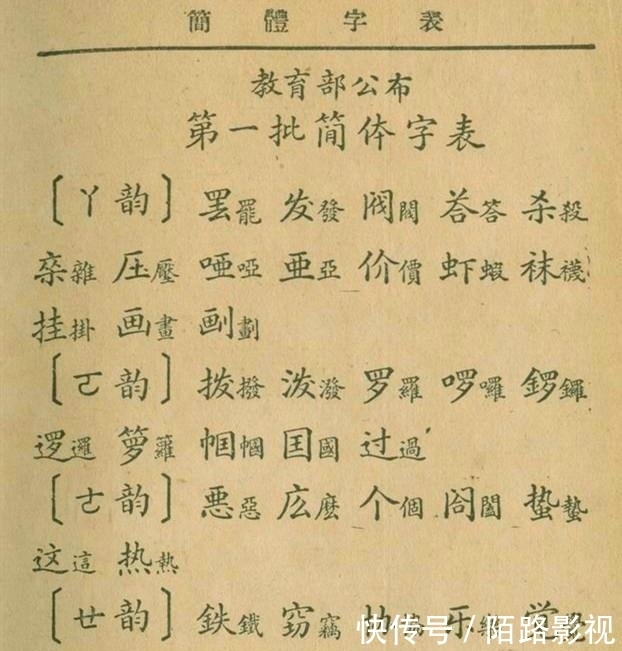 簡體字表
教育部公布
第一批简体字表
〔ㄚ韵〕罢罷 发發 阀閥 荅答 杀殺
杂雜 压壓 哑啞 亚亞 价價 虾蝦 袜襪
挂掛 画畫 劃
〔ㄛ韵〕拨撥 泼潑 罗羅 啰囉 鑼
逻邏 箩籮 帼幗 国國 过過
〔ㄜ韵〕恶惡 庅麽 个個 阁閤 蛰蟄
这這 热熱
〔ㄝ韵〕鉄鐵 窃竊 乐 觉
快传号/陌路影视